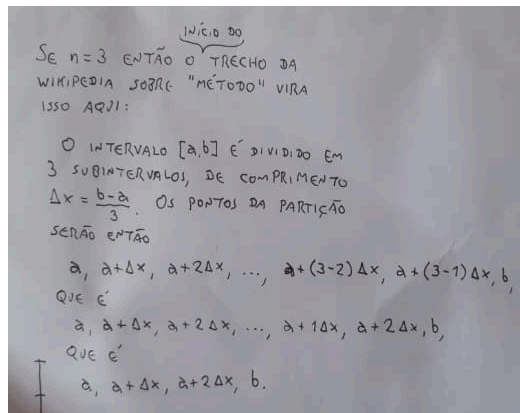 INÍCIO DO
SE n=3 ENTÃO O TRECHO DA
WIKIPEDIA SOBRE "MÉTODO" VIRA
ISSO AQUI:
O INTERVALO [a,b] É DIVIDIDO EM
3 SUBINTERVALOS, DE COMPRIMENTO
Δx = (b-a)/3. OS PONTOS DA PARTIÇÃO
SERÃO ENTÃO
a, a+Δx, a+2Δx, ..., a+(3-2)Δx, a+(3-1)Δx, b,
QUE É
a, a+Δx, a+2Δx, ..., a+1Δx, a+2Δx, b,
QUE É
a, a+Δx, a+2Δx, b.